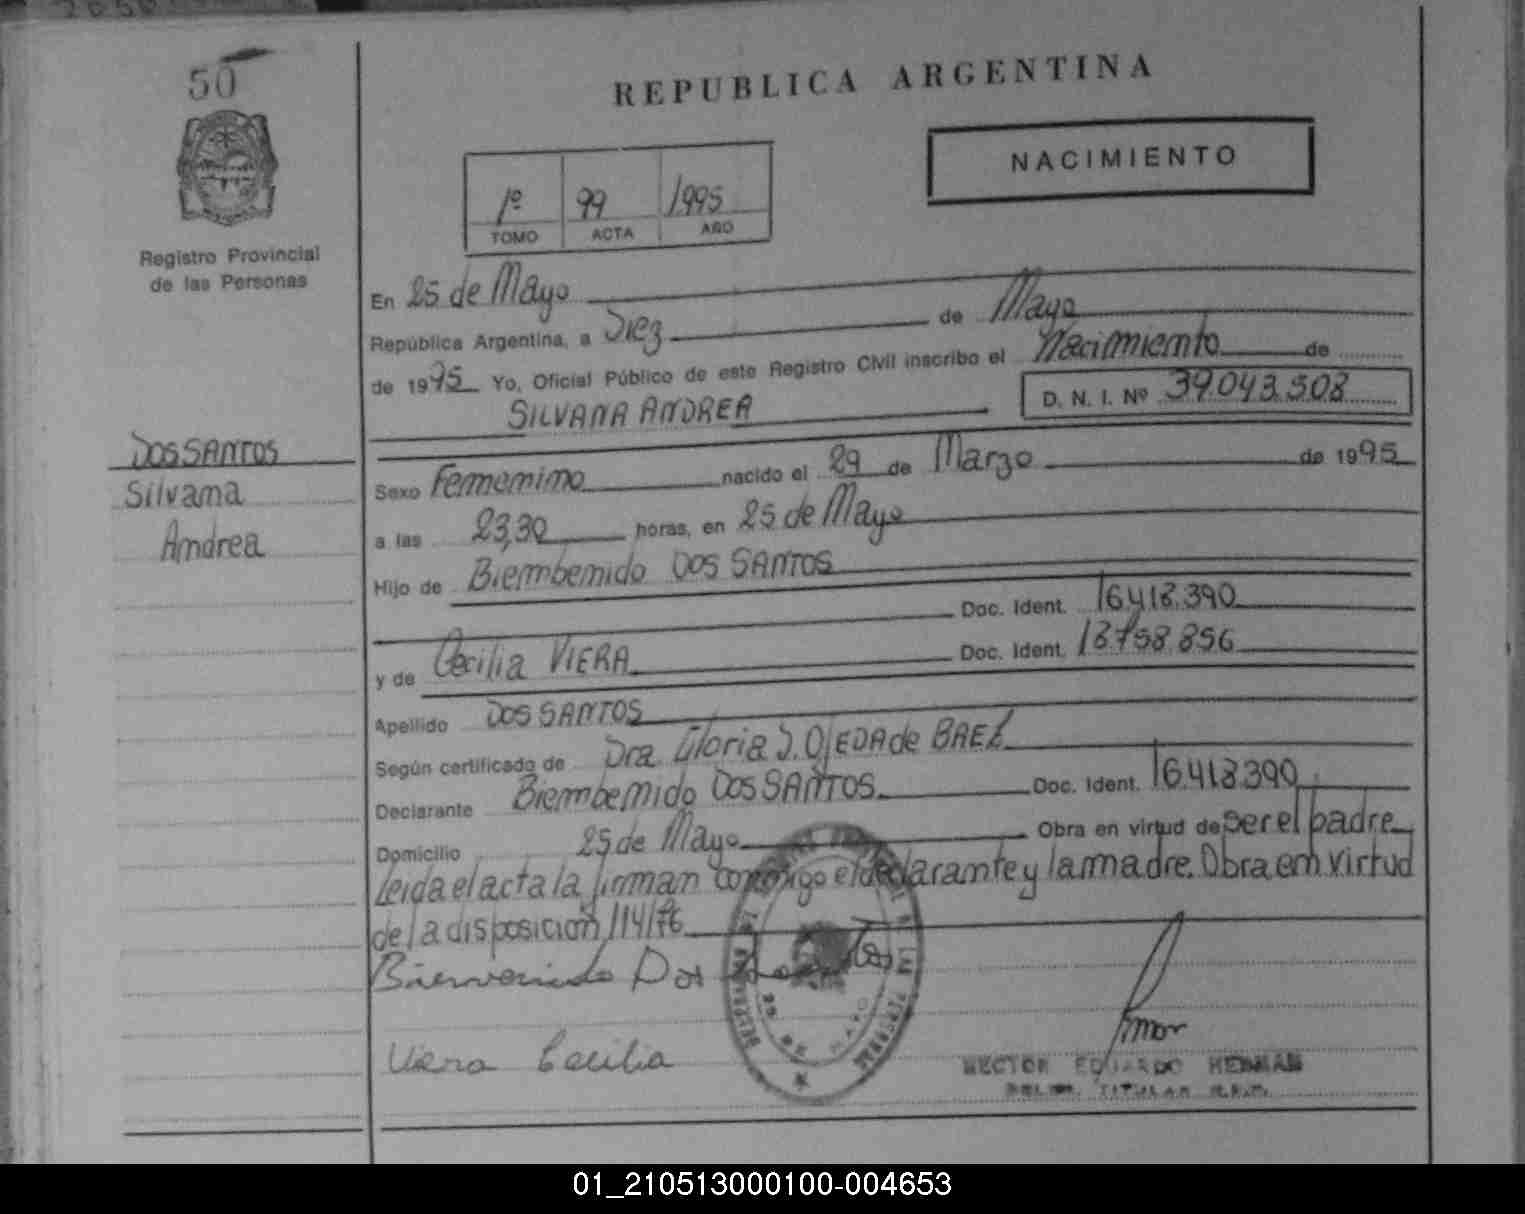 50
REPUBLICA ARGENTINA
NACIMIENTO
1º 99 1995
TOMO ACTA AÑO
Registro Provincial
de las Personas
En 25 de Mayo
República Argentina, a Diez de Mayo
de 1995 Yo, Oficial Público de este Registro Civil inscribo el Nacimiento de
SILVANA ANDREA D. N. I. Nº 39.043.508
DOS SANTOS
Silvana
Andrea
Sexo Femenino nacido el 29 de Marzo de 1995
a las 23,30 horas, en 25 de Mayo
Hijo de Bienbenido DOS SANTOS
Doc. Ident. 16.418.390
y de Cecilia VIERA Doc. Ident. 18.758.856
Apellido DOS SANTOS
Según certificado de Dra. Gloria J. OJEDA de BAEZ
Declarante Bienbenido DOS SANTOS Doc. Ident. 16.418.390
Domicilio 25 de Mayo Obra en virtud de ser el padre
Leida el acta la firman conmigo el declarante y la madre. Obra en virtud
de la disposición 114/76
Bienvenido Dos Santos
Viera Cecilia
HECTOR EDUARDO
TITULAR
01_210513000100-004653